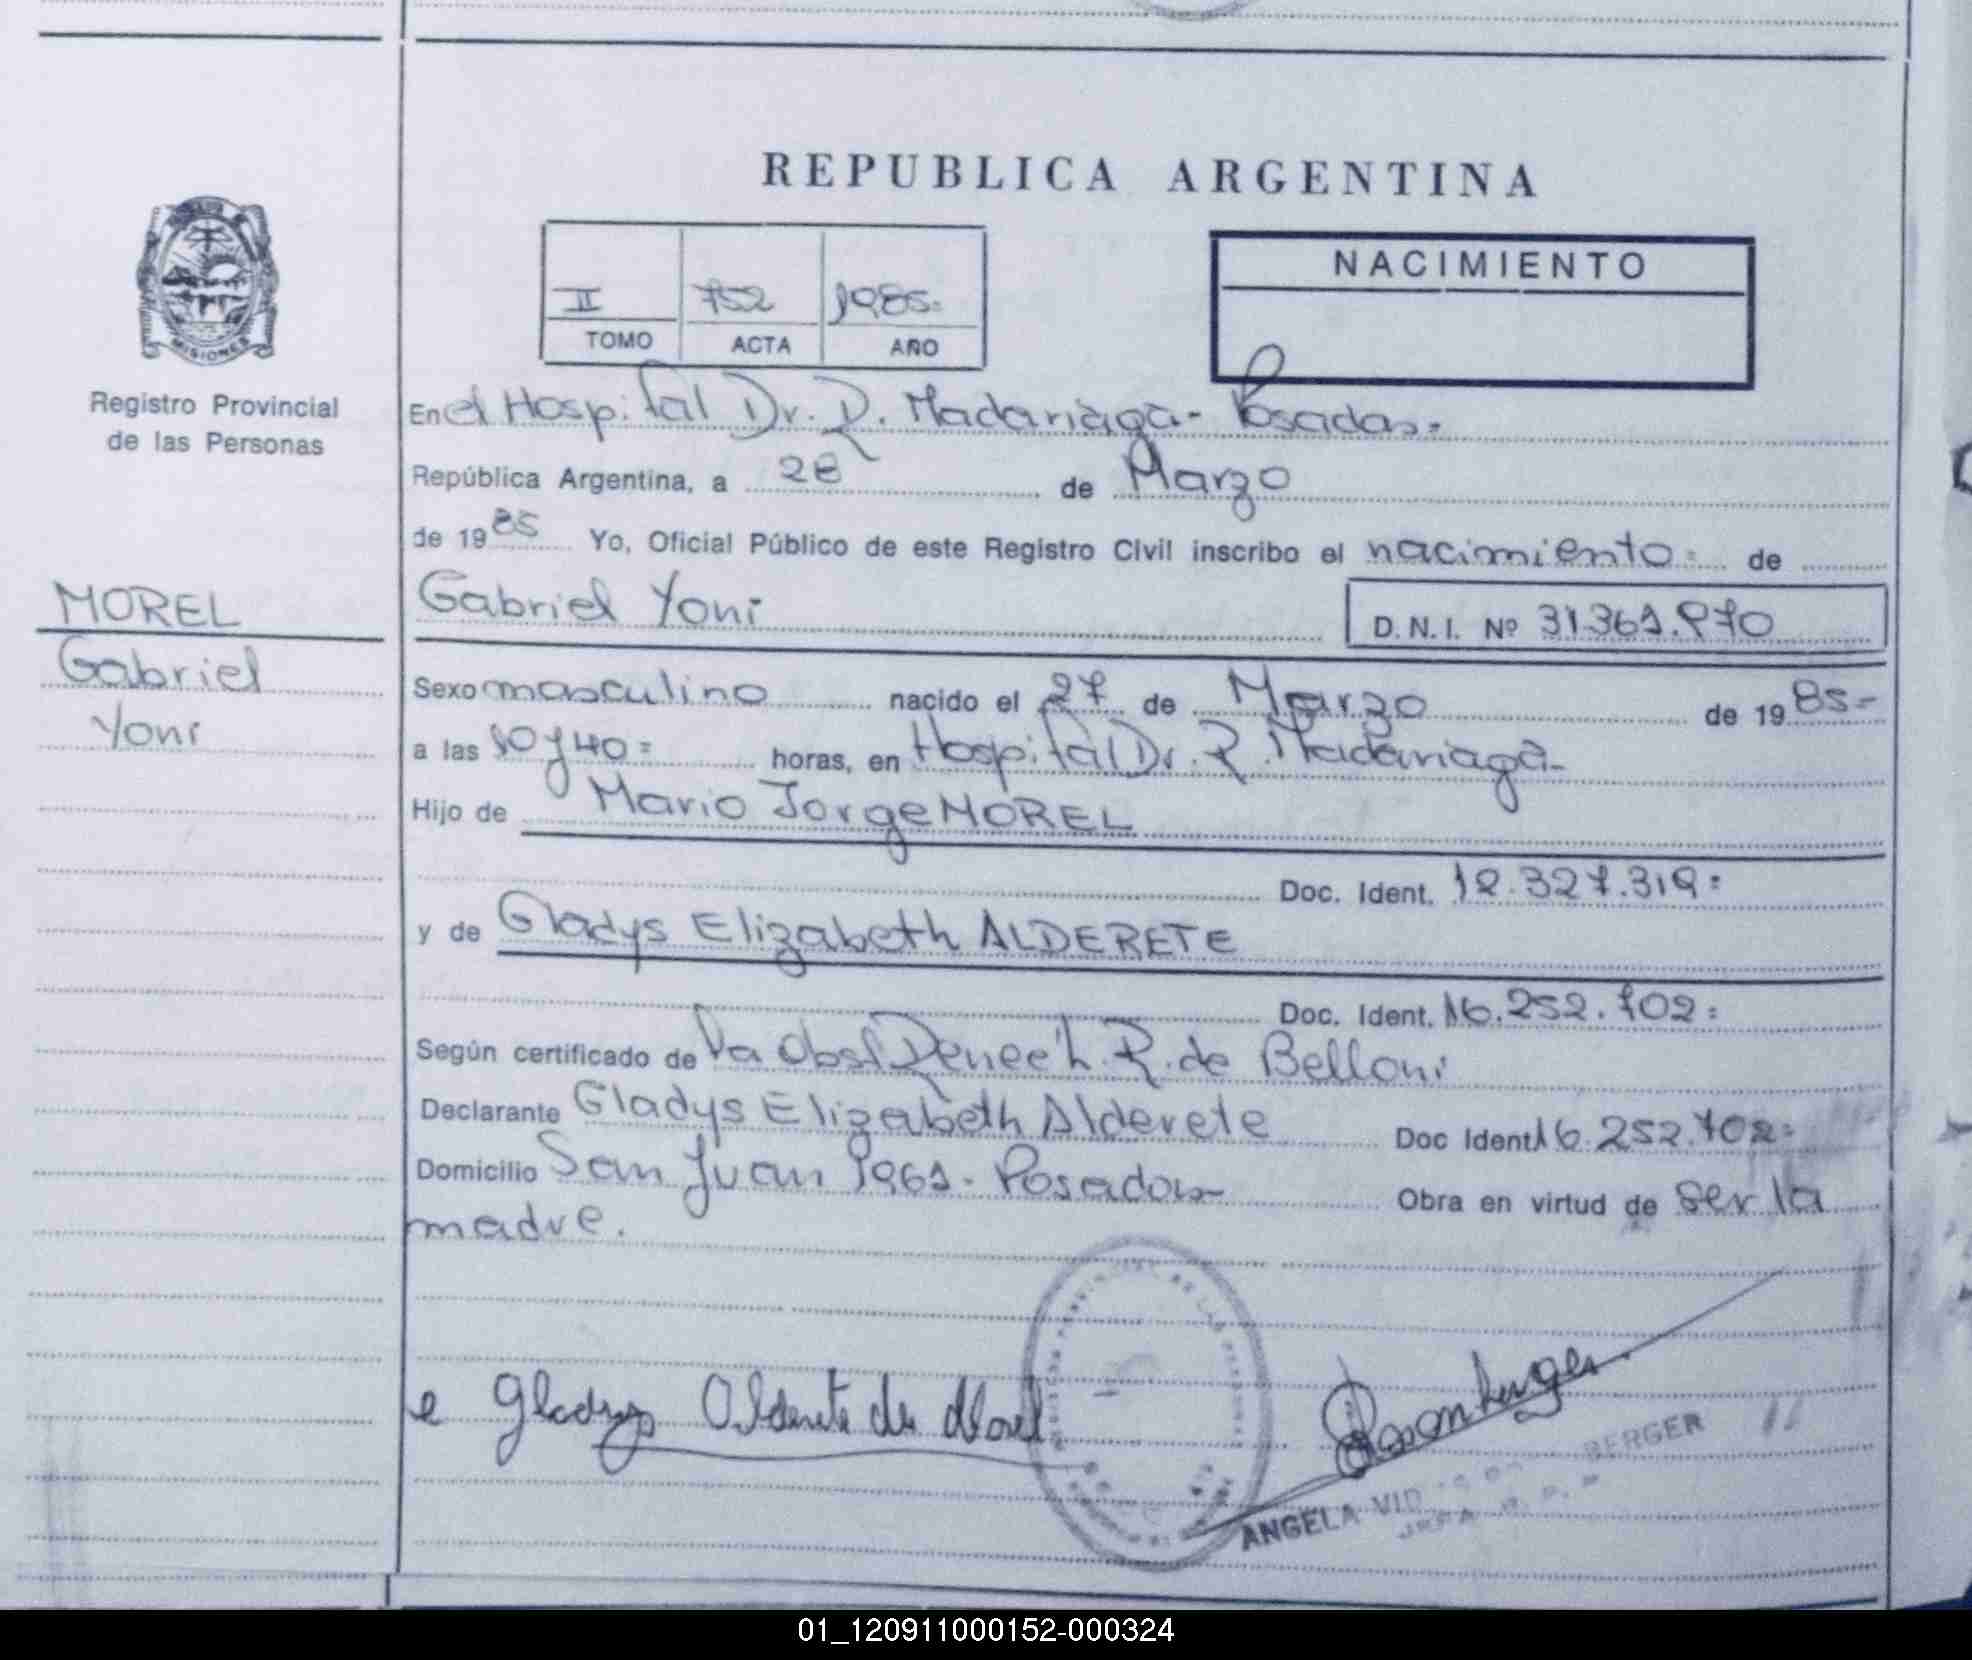 REPUBLICA ARGENTINA
II 752 1985.
TOMO ACTA AÑO
NACIMIENTO
MISIONES
Registro Provincial
de las Personas
MOREL
Gabriel
Yoni
En el Hospital Dr. R. Madariaga - Posadas.
República Argentina, a 28 de Marzo
de 1985 Yo, Oficial Público de este Registro Civil inscribo el nacimiento= de
Gabriel Yoni D.N.I. Nº 31.361.970
Sexo masculino nacido el 27 de Marzo de 1985-
a las 10 y 40= horas, en Hospital Dr. R. Madariaga-
Hijo de Mario Jorge MOREL
Doc. Ident. 12.327.319=
y de Gladys Elizabeth ALDERETE
Doc. Ident. 16.252.702=
Según certificado de la Obst R. de Belloni
Declarante Gladys Elizabeth Alderete Doc Ident 16.252.702=
Domicilio San Juan 1961- Posadas- Obra en virtud de ser la
madre.
Gladys Alderete de Morel
BERGER
ANGELA
01_120911000152-000324